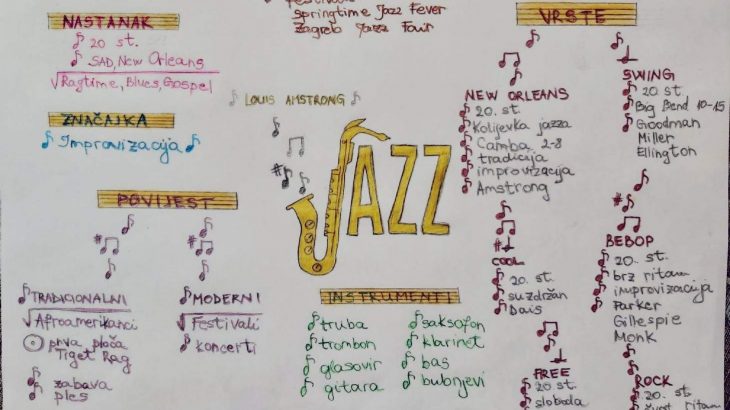 Festivali
Springtime Jazz Fever
Zagreb Jazz Fair
NASTANAK
20 st.
SAD, New Orleans
Ragtime, Blues, Gospel
ZNAČAJKA
Improvizacija
POVIJEST
TRADICIONALNI
Afroamerikanci
prva ploča
Tiget Rag
zabava
ples
MODERNI
Festivali
koncerti
LOUIS AMSTRONG
JAZZ
INSTRUMENTI
truba
trombon
glasovir
gitara
saksofon
klarinet
bas
bubnjevi
VRSTE
NEW ORLEANS
20. st.
Kolijevka jazza
Camba 2-8
tradicija
improvizacija
Amstrong
COOL
20. st.
suzdržan
Dais
FREE
20 st.
sloboda
SWING
20 st.
Big Bend 10-15
Goodman
Miller
Ellington
BEBOP
20. st.
brz ritam
improvizacija
Parker
Gillespie
Monk
ROCK
20. st.
ritam